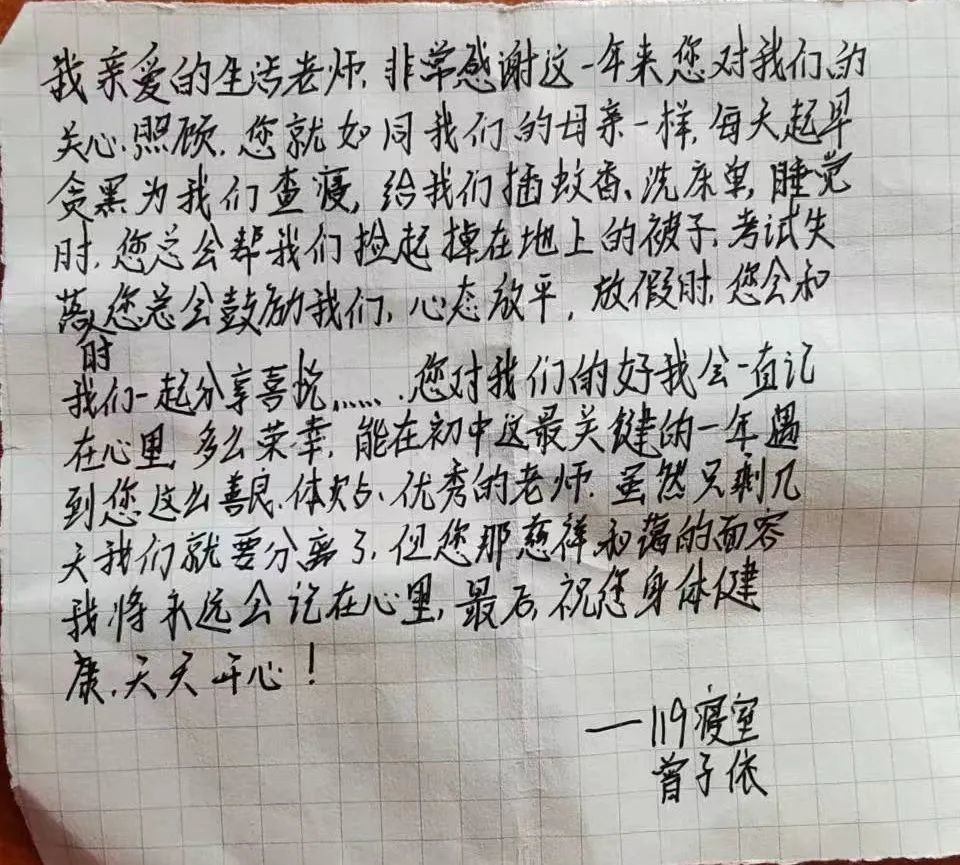 我亲爱的生活老师,非常感谢这一年来您对我们的
关心.照顾.您就如同我们的母亲一样,每天起早
贪黑为我们查寝,给我们插蚊香、洗床单,睡觉
时,您总会帮我们捡起掉在地上的被子.考试失
落,您总会鼓励我们,心态放平,放假时,您会和
时
我们一起分享喜悦......您对我们的好我会一直记
在心里,多么荣幸,能在初中这最关键的一年遇
到您这么善良.体贴、优秀的老师.虽然只剩几
天我们就要分离了,但您那慈祥和蔼的面容
我将永远会记在心里,最后,祝您身体健
康.天天开心!
—119寝室
曾子依